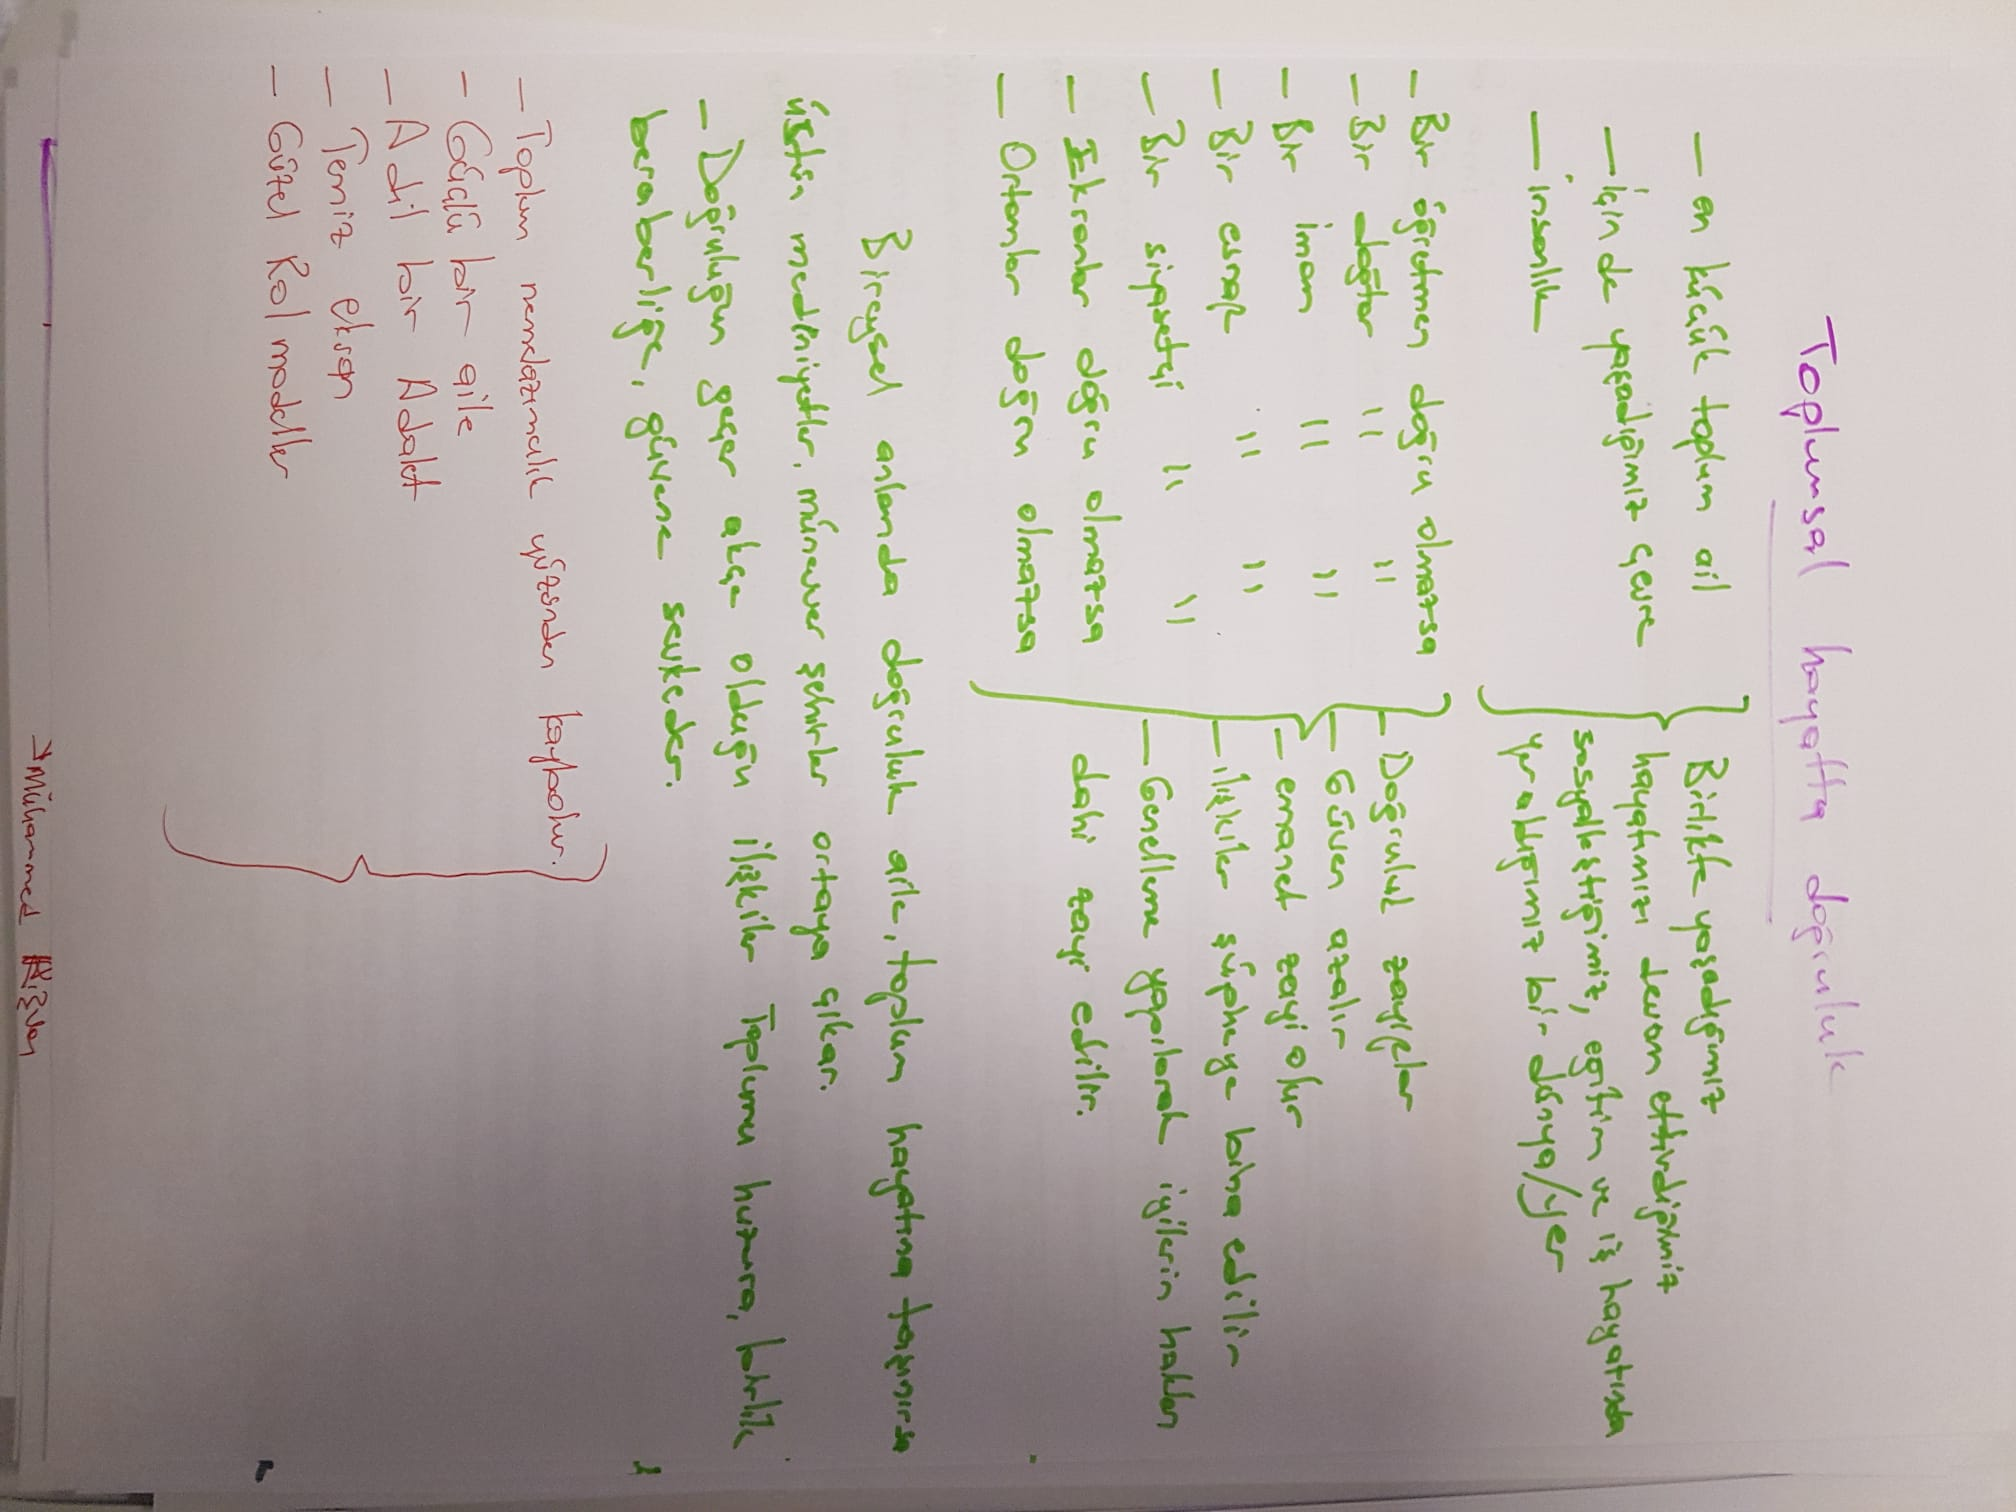 Toplumsal hayatta doğruluk
— en küçük toplum ail
— için de yaşadığımız çevre
— insanlık
Birlikte yaşadığımız
hayatımızı devam ettirdiğimiz
sosyalleştiğimiz, eğitim ve iş hayatında
yer aldığımız bir dünya/yer
— Bir öğretmen doğru olmazsa
— Bir doğtor " "
— Bir imam " "
— Bir esnaf " "
— Bir siyasetçi " "
— Ekranlar doğru olmazsa
— Ortamlar doğru olmazsa
— Doğruluk zayıflar
— Güven azalır
— emanet zayi olur
— ilişkiler şüpheye bina edilir
— Genelleme yapılarak iyilerin hakları
dahi zayi edilir.
Bireysel anlamda doğruluk aile, toplum hayatına taşınırsa
üstün medniyetler, münevver şehirler ortaya çıkar.
— Doğruluğun geçer akçe olduğu ilişkiler Toplumu huzura, birlik
beraberliğe, güvene sevkeder.
— Toplum nemelazımcılık yüzünden kaybolur.
— Güçlü bir aile
— Adil bir Adalet
— Temiz ekran
— Güzel Rol modeller
→ Muhammed Rıdvan